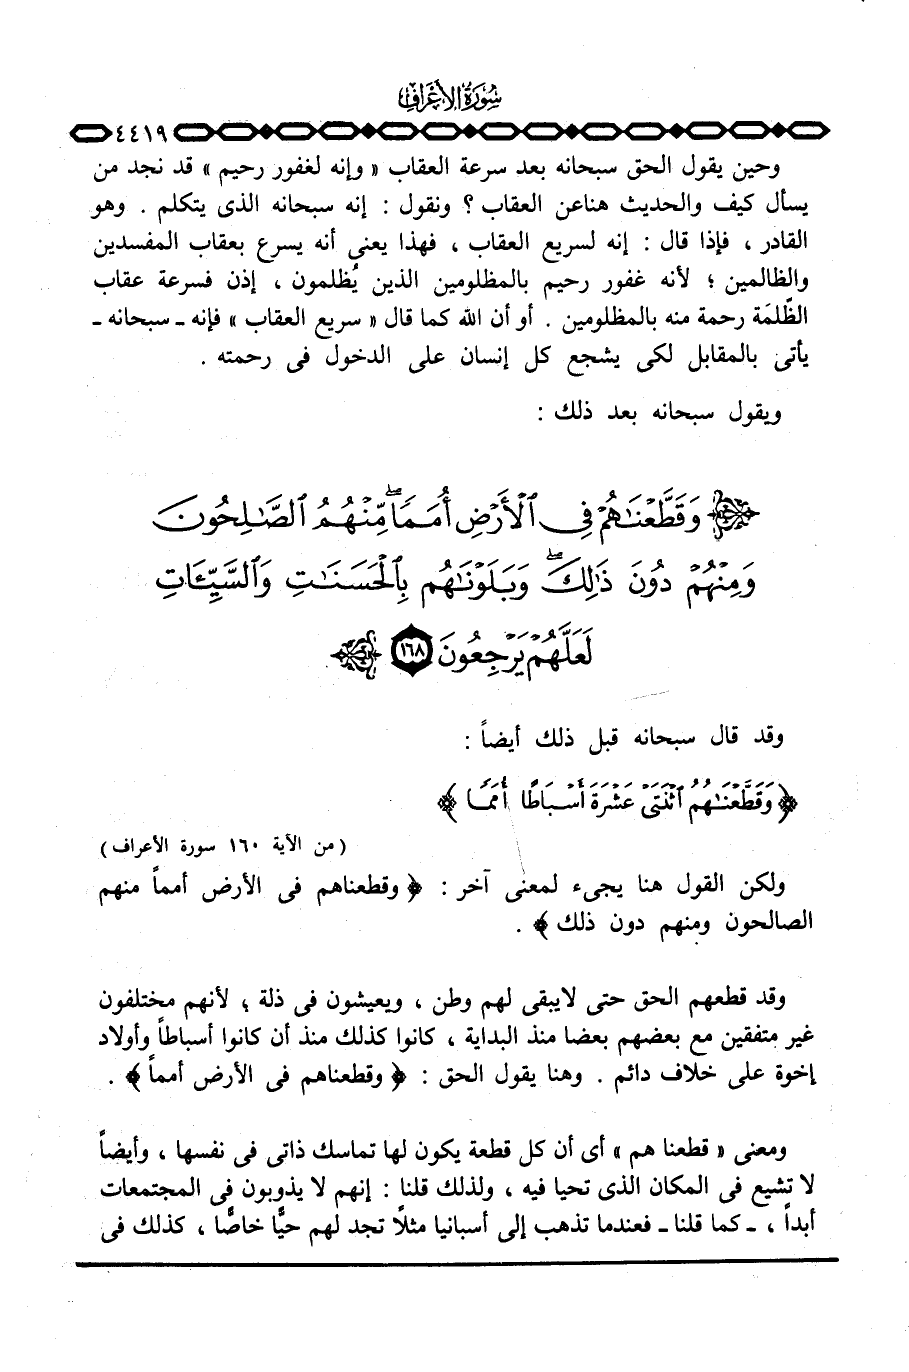 سورة الأعراف
٤٤١٩
وحين يقول الحق سبحانه بعد سرعة العقاب « وإنه لغفور رحيم » قد نجد من
يسأل كيف والحديث هناعن العقاب ؟ ونقول : إنه سبحانه الذى يتكلم . وهو
القادر ، فإذا قال : إنه لسريع العقاب ، فهذا يعنى أنه يسرع بعقاب المفسدين
والظالمين ؛ لأنه غفور رحيم بالمظلومين الذين يُظلمون ، إذن فسرعة عقاب
الظَّلمَة رحمة منه بالمظلومين . أو أن الله كما قال « سريع العقاب » فإنه ـ سبحانه ـ
يأتى بالمقابل لكى يشجع كل إنسان على الدخول فى رحمته .
ويقول سبحانه بعد ذلك :
وَقَطَّعْنَٰهُمْ فِى ٱلْأَرْضِ أُمَمًا ۖ مِّنْهُمُ ٱلصَّٰلِحُونَ
وَمِنْهُمْ دُونَ ذَٰلِكَ ۖ وَبَلَوْنَٰهُم بِٱلْحَسَنَٰتِ وَٱلسَّيِّـَٔاتِ
لَعَلَّهُمْ يَرْجِعُونَ ١٦٨
وقد قال سبحانه قبل ذلك أيضاً :
﴿ وَقَطَّعْنَٰهُمُ ٱثْنَتَىْ عَشْرَةَ أَسْبَاطًا أُمَمًا ﴾
( من الآية ١٦٠ سورة الأعراف )
ولكن القول هنا يجىء لمعنى آخر : ﴿ وقطعناهم فى الأرض أمماً منهم
الصالحون ومنهم دون ذلك ﴾ .
وقد قطعهم الحق حتى لايبقى لهم وطن ، ويعيشون فى ذلة ؛ لأنهم مختلفون
غير متفقين مع بعضهم بعضا منذ البداية ، كانوا كذلك منذ أن كانوا أسباطاً وأولاد
إخوة على خلاف دائم . وهنا يقول الحق : ﴿ وقطعناهم فى الأرض أمماً ﴾ .
ومعنى « قطعنا هم » أى أن كل قطعة يكون لها تماسك ذاتى فى نفسها ، وأيضاً
لا تشيع فى المكان الذى تحيا فيه ، ولذلك قلنا : إنهم لا يذوبون فى المجتمعات
أبداً ، ـ كما قلنا ـ فعندما تذهب إلى أسبانيا مثلاً تجد لهم حيًّا خاصًّا ، كذلك فى